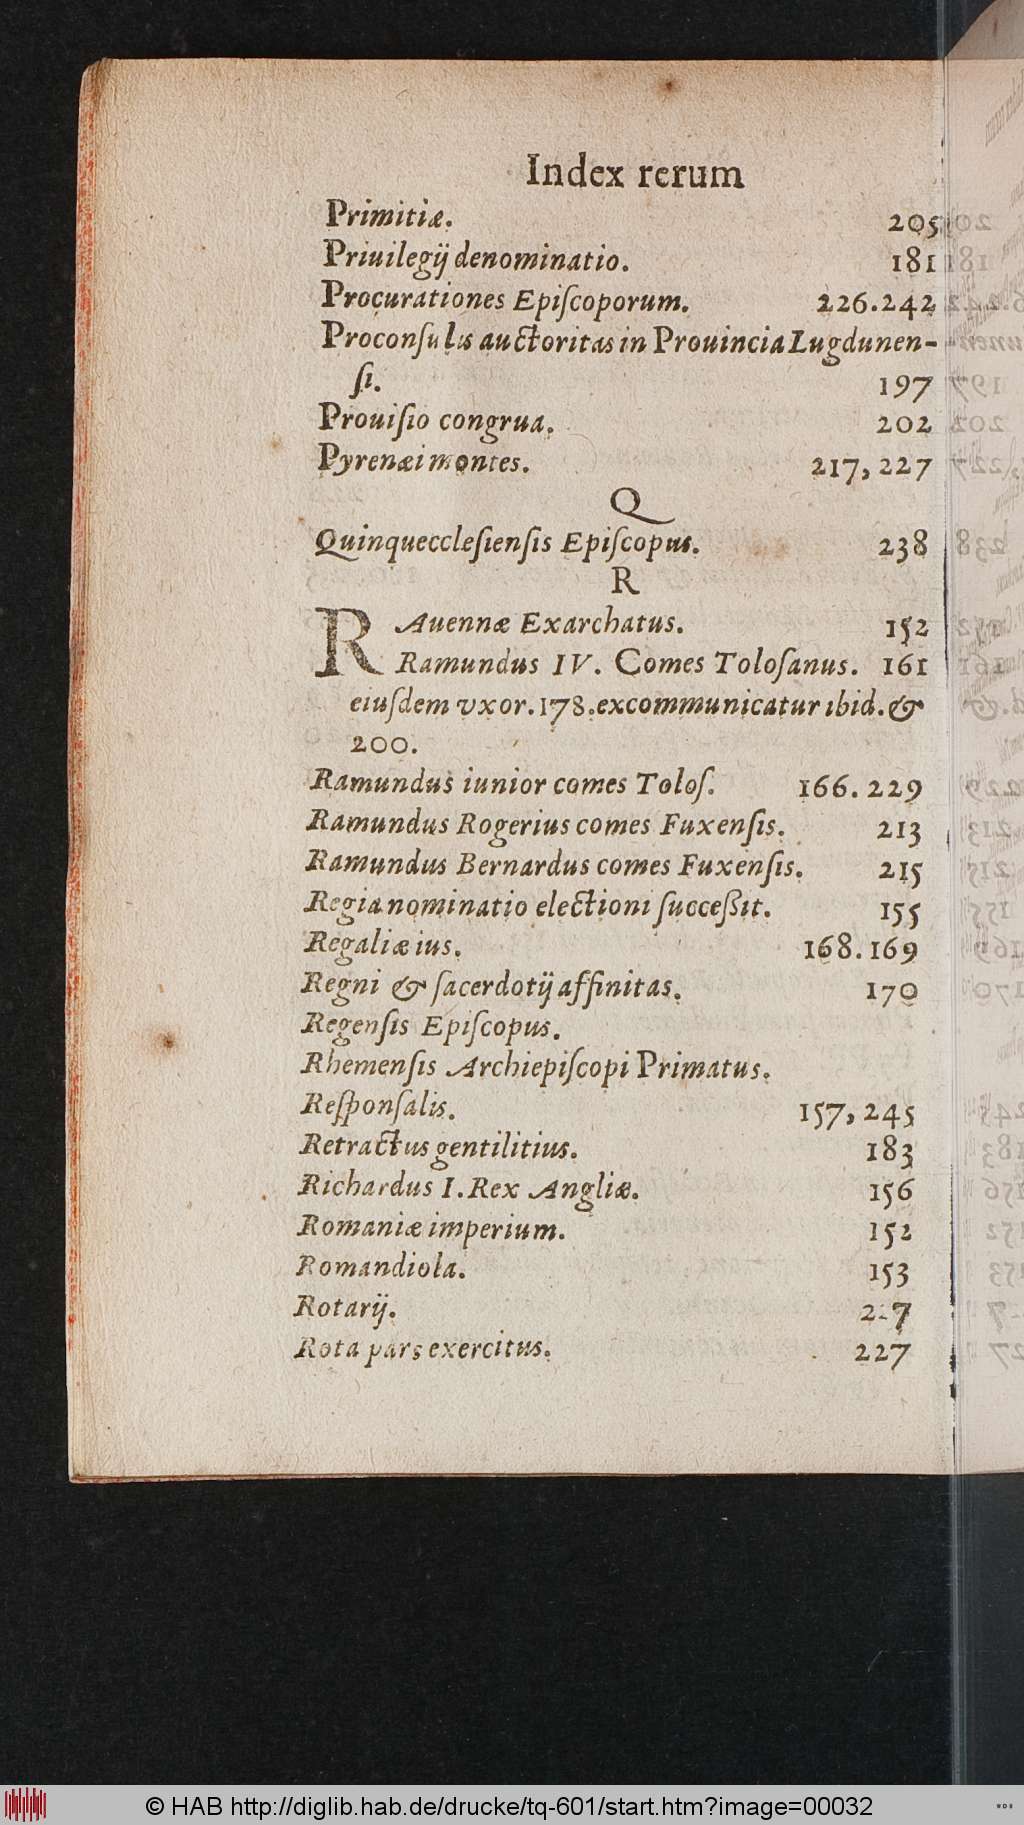 Index rerum
Primitiæ. 205
Priuilegij denominatio. 181
Procurationes Epiſcoporum. 226.242
Proconſulis auctoritas in Prouincia Lugdunen-
ſi. 197
Prouiſio congrua. 202
Pyrenæi montes. 217, 227
Q
Quinquecclesienſis Epiſcopus. 238
R
RAuennæ Exarchatus. 152
Ramundus IV. Comes Toloſanus. 161
eiuſdem vxor. 178. excommunicatur ibid. &
200.
Ramundus iunior comes Toloſ. 166. 229
Ramundus Rogerius comes Fuxenſis. 213
Ramundus Bernardus comes Fuxenſis. 215
Regia nominatio electioni ſucceßit. 155
Regaliæ ius. 168.169
Regni & ſacerdotij affinitas. 170
Regenſis Epiſcopus.
Rhemenſis Archiepiſcopi Primatus.
Reſponſalis. 157, 245
Retractus gentilitius. 183
Richardus I. Rex Angliæ. 156
Romaniæ imperium. 152
Romandiola. 153
Rotarij.
Rota pars exercitus. 227
© HAB http://diglib.hab.de/drucke/tq-601/start.htm?image=00032